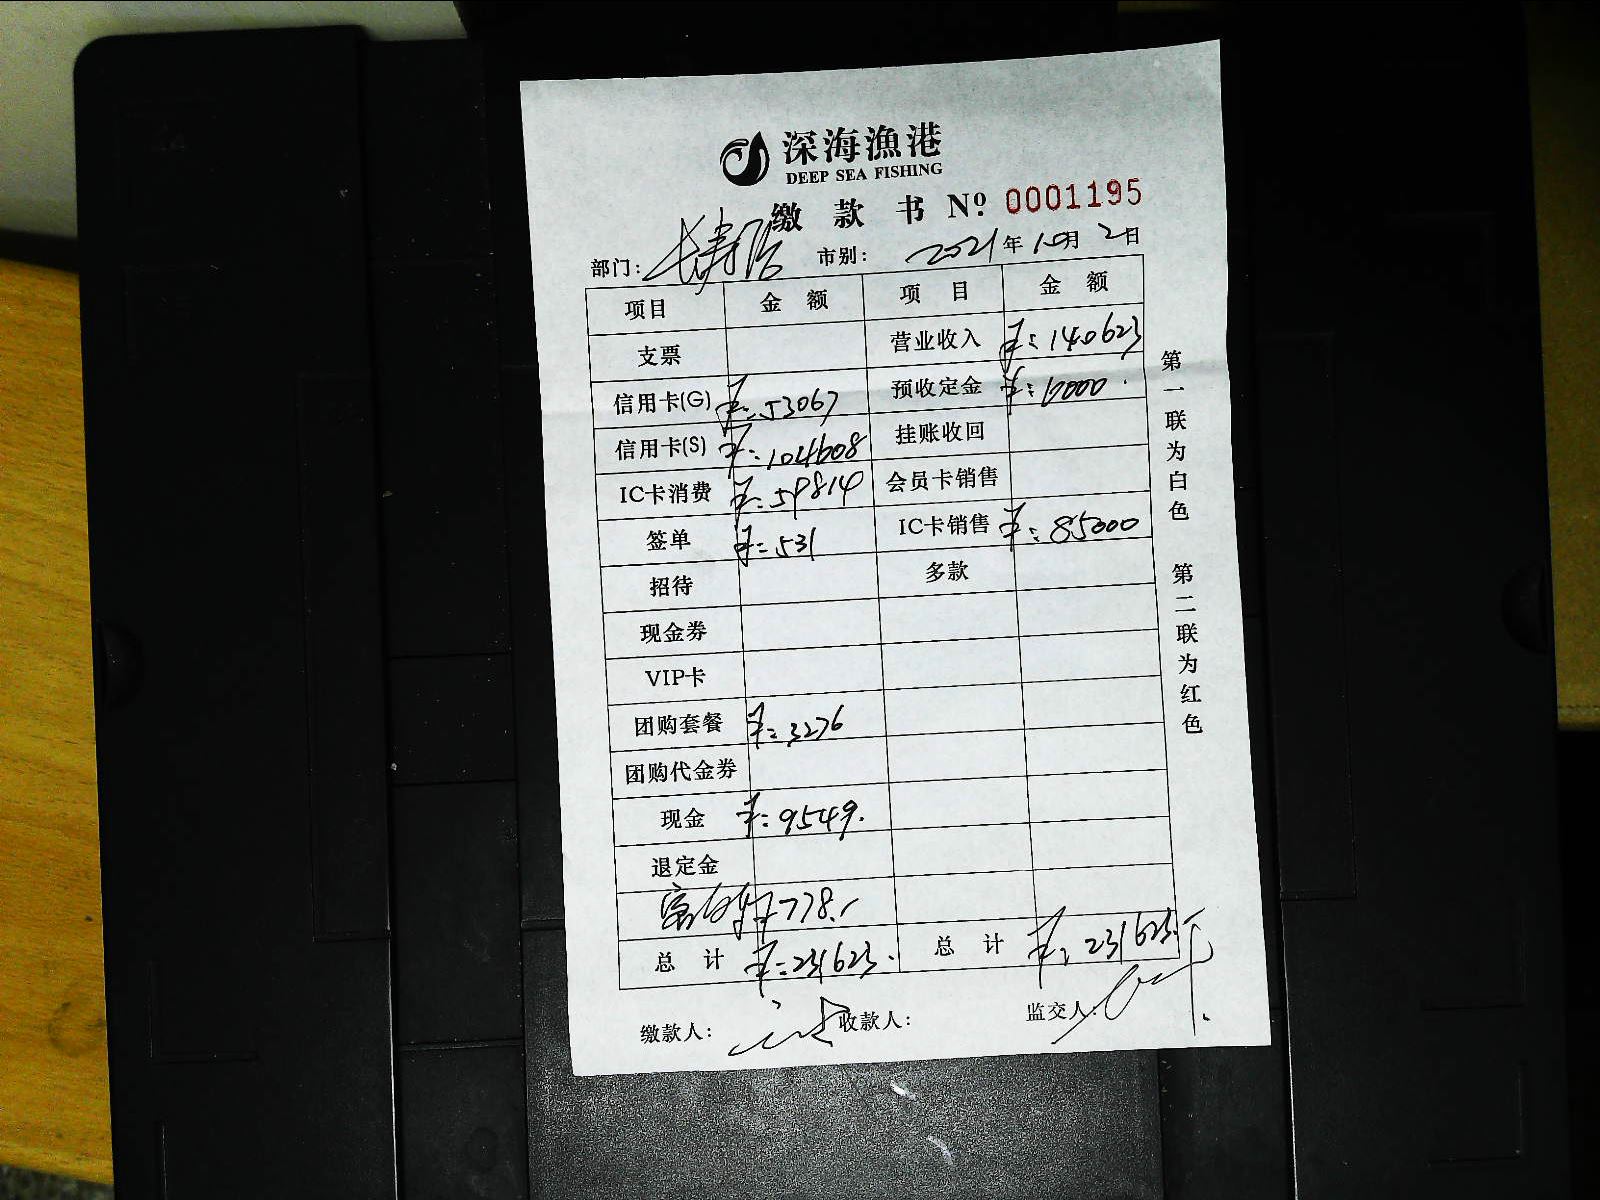 深海漁港
DEEP SEA FISHING
缴款书 Nº 0001195
部门: 长寿路 市别: 2021年10月2日
项目 金额 项目 金额
支票 营业收入 ¥:140623
信用卡(G) ¥:53067 预收定金 ¥:6000
信用卡(S) ¥:104608 挂账收回
IC卡消费 ¥:59814 会员卡销售
签单 ¥:531 IC卡销售 ¥:85000
招待 多款
现金券
VIP卡
团购套餐 ¥:3276
团购代金券
现金 ¥:9549.
退定金
¥778.
总计 ¥:231623. 总计 ¥:231623.
缴款人: 收款人: 监交人:
第一联为白色 第二联为红色